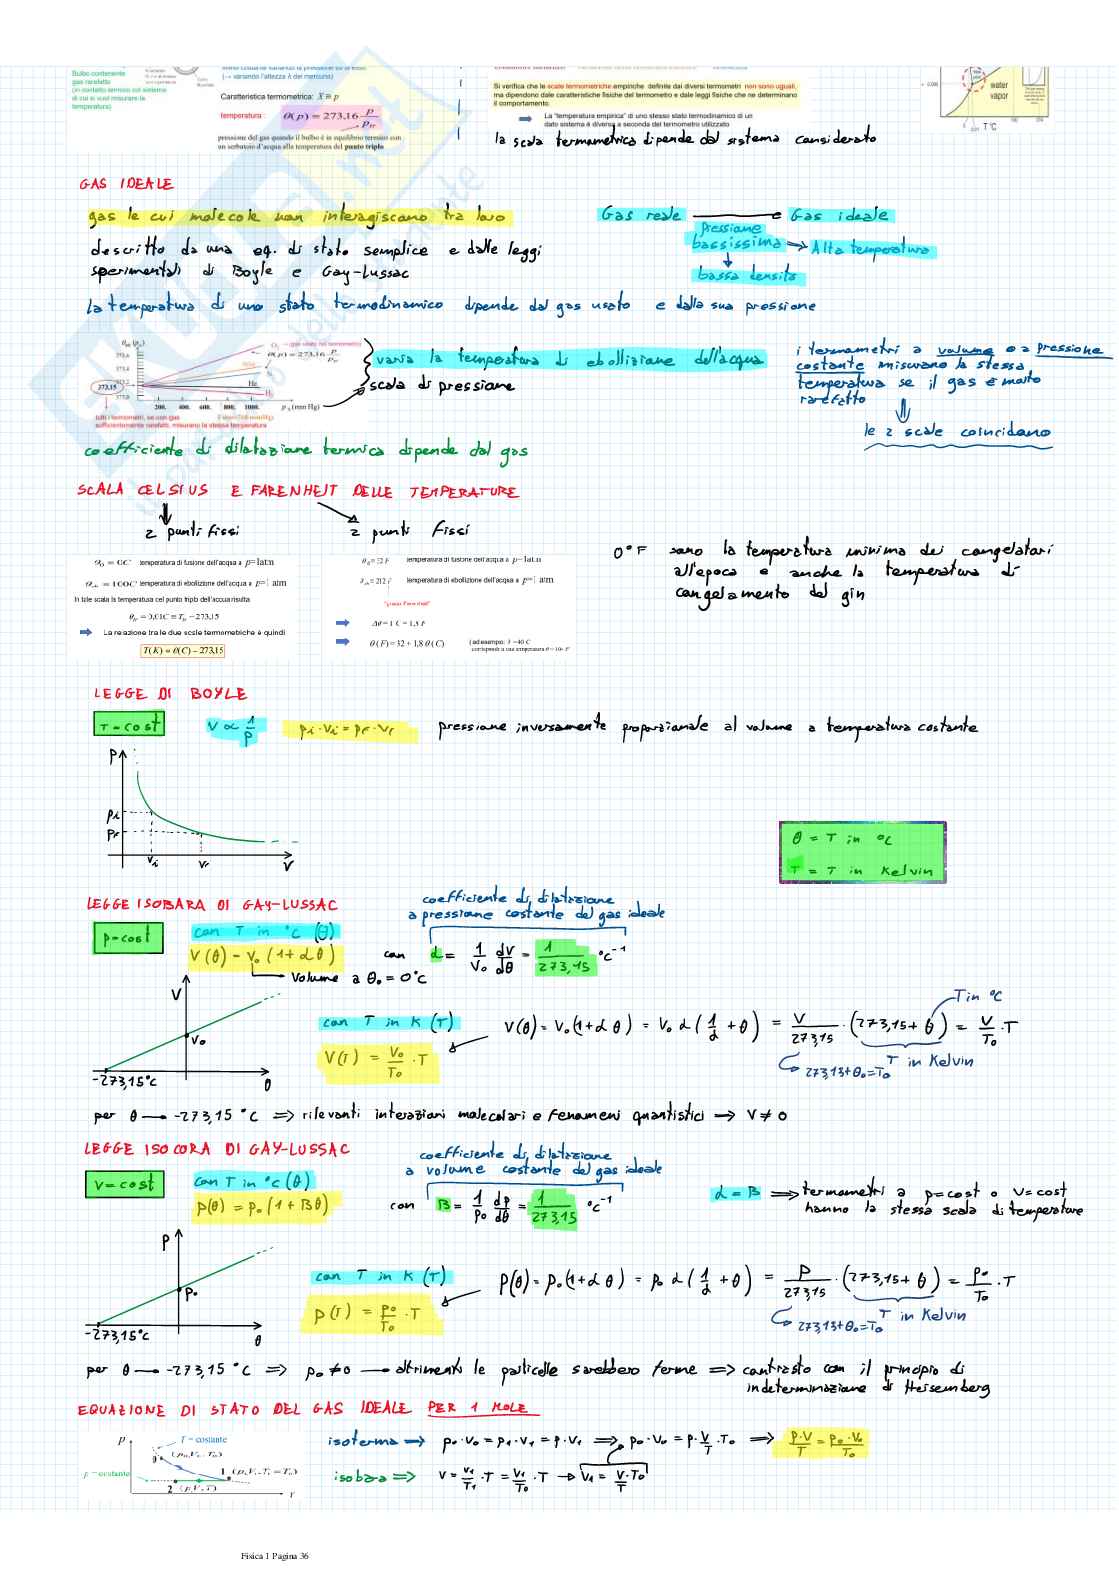 Bulbo contenente
gas rarefatto
(in contatto termico col sistema
di cui si vuol misurare la
temperatura)
(→ variando l'altezza h del mercurio)
Caratteristica termometrica: X ≡ p
temperatura: θ(p) = 273,16 p/p_tr
pressione del gas quando il bulbo è in equilibrio termico con
un serbatoio d'acqua alla temperatura del punto triplo
Si verifica che le scale termometriche empiriche definite dai diversi termometri non sono uguali,
ma dipendono dalle caratteristiche fisiche del termometro e dalle leggi fisiche che ne determinano
il comportamento.
La "temperatura empirica" di uno stesso stato termodinamico di un
dato sistema è diversa a seconda del termometro utilizzato
water
vapor
T °C
la scala termometrica dipende dal sistema considerato
GAS IDEALE
gas le cui molecole non interagiscono tra loro
Gas reale → Gas ideale
pressione
bassissima ⇒ Alta temperatura
↓
bassa densità
descritto da una eq. di stato semplice e dalle leggi
sperimentali di Boyle e Gay-Lussac
la temperatura di uno stato termodinamico dipende dal gas usato e dalla sua pressione
O₂ → (gas usato nel termometro)
θ(p) = 273,16 p/p_tr
373,15
He
H₂
200. 400. 600. 800. 1000. (mm Hg)
tutti i termometri, se con gas
sufficientemente rarefatti, misurano la stessa temperatura
varia la temperatura di ebollizione dell'acqua
scala di pressione
i termometri a volume o a pressione
costante misurano la stessa
temperatura se il gas è molto
rarefatto
⇓
le 2 scale coincidono
coefficiente di dilatazione termica dipende dal gas
SCALA CELSIUS E FARENHEIT DELLE TEMPERATURE
2 punti fissi
2 punti fissi
θ₀ = 0°C temperatura di fusione dell'acqua a p=1atm
θ₁₀₀ = 100°C temperatura di ebollizione dell'acqua a p=1 atm
In tale scala la temperatura del punto triplo dell'acqua risulta
θ_tr = 0,01°C ≡ T_tr − 273,15
La relazione tra le due scale termometriche è quindi
T(K) = θ(C) − 273,15
θ₀ = 32 F temperatura di fusione dell'acqua a p=1atm
θ₁₀₀ = 212 F temperatura di ebollizione dell'acqua a p=1 atm
"gradi Farenheit"
Δθ = 1 C = 1,8 F
θ(F) = 32 + 1,8 θ(C)
0°F sono la temperatura minima dei congelatori
all'epoca e anche la temperatura di
congelamento del gin
LEGGE DI BOYLE
T = cost V ∝ 1/p pi·Vi = pf·Vf pressione inversamente proporzionale al volume a temperatura costante
p
pi
pf
Vi Vf V
θ = T in °C
T = T in Kelvin
LEGGE ISOBARA DI GAY-LUSSAC
coefficiente di dilatazione
a pressione costante del gas ideale
p=cost
con T in °C (θ)
V(θ) = V₀ (1+αθ) con α = 1/V₀ dV/dθ = 1/273,15 °C⁻¹
Volume a θ₀ = 0°C
V
V₀
-273,15°C
θ
con T in K (T)
V(T) = V₀/T₀ · T
V(θ) = V₀(1+αθ) = V₀ α (1/α + θ) = V/273,15 · (273,15 + θ) = V/T₀ · T
T in °C
T in Kelvin
273,15+θ₀=T₀
per θ → -273,15 °C ⇒ rilevanti interazioni molecolari e fenomeni quantistici → V ≠ 0
LEGGE ISOCORA DI GAY-LUSSAC
coefficiente di dilatazione
a volume costante del gas ideale
V = cost
con T in °C (θ)
p(θ) = p₀ (1 + Bθ) con B = 1/p₀ dp/dθ = 1/273,15 °C⁻¹
α = B ⇒ termometri a p=cost o V=cost
hanno la stessa scala di temperature
p
p₀
-273,15°C
θ
con T in K (T)
p(T) = p₀/T₀ · T
p(θ) = p₀(1+αθ) = p₀ α (1/α + θ) = p/273,15 · (273,15 + θ) = p₀/T₀ · T
T in Kelvin
273,15+θ₀=T₀
per θ → -273,15 °C ⇒ p₀ ≠ 0 → altrimenti le particelle sarebbero ferme ⇒ contrasto con il principio di
indeterminazione di Heisemberg
EQUAZIONE DI STATO DEL GAS IDEALE PER 1 MOLE
p
T = costante
(p₀,V₀,T₀)
p = costante
1 (p,V₁,T₁ = T₀)
2 (p,V,T)
V
isoterma ⇒ p₀·V₀ = p₁·V₁ = p·V₁ ⇒ p₀·V₀ = p·V/T·T₀ ⇒ p·V/T = p₀·V₀/T₀
isobara ⇒ V = V₁/T₁ · T = V₁/T₀ · T → V₁ = V·T₀/T
Fisica 1 Pagina 36